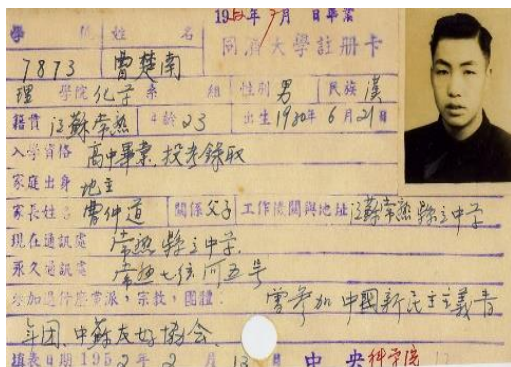 1952年7月 日畢業
學 號 姓 名 同濟大學註册卡
7873 曹楚南
理 學院 化学 系 組 性别 男 民族 漢
籍貫 江蘇常熟 年齡 23 出生 1930年 6月 21日
入学資格 高中畢業,投考錄取
家庭出身 地主
家長姓名 曹仲道 關係 父子 工作機關與地址 江蘇常熟縣立中学
現在通訊處 常熟縣立中学
永久通訊處 常熟七弦河五号
参加過什麽黨派,宗教,團體: 曾参加中國新民主主義青
年团、中蘇友好協会
填表日期 1952年 2 月 13 日 中央科学院